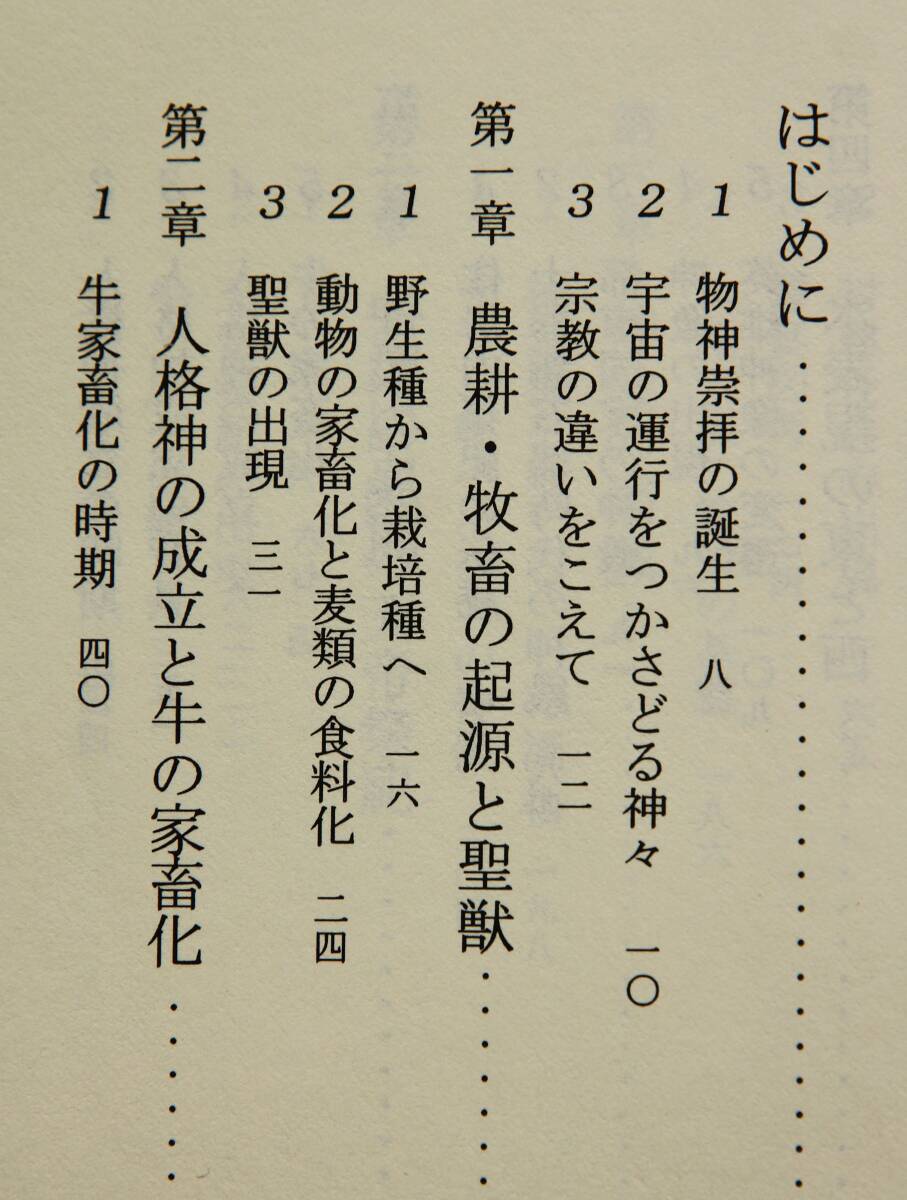 はじめに・・・・・・・・・・・・・・・・・・・・・・・・
1 物神崇拝の誕生 八
2 宇宙の運行をつかさどる神々 一〇
3 宗教の違いをこえて 一二
第一章 農耕・牧畜の起源と聖獣・・・・・・・
1 野生種から栽培種へ 一六
2 動物の家畜化と麦類の食料化 二四
3 聖獣の出現 三一
第二章 人格神の成立と牛の家畜化・・・・・・
1 牛家畜化の時期 四〇